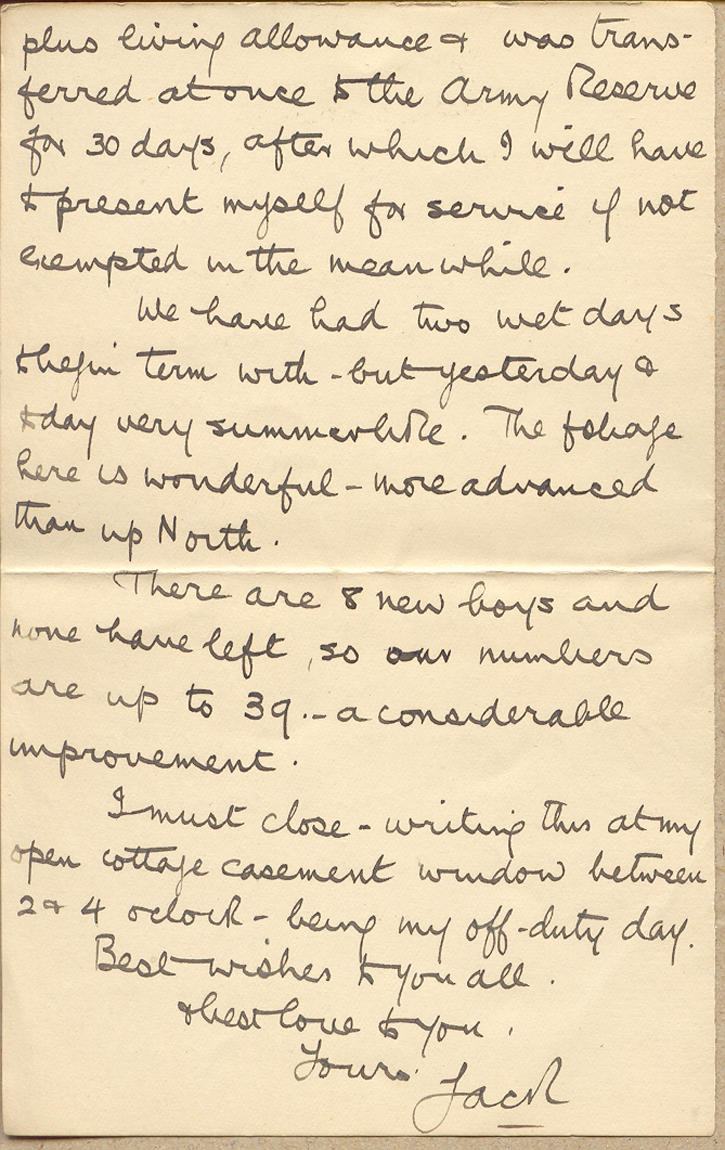 plus living allowance & was trans-
ferred at once to the Army Reserve
for 30 days, after which I will have
to present myself for service if not
exempted in the mean while.
We have had two wet days
to begin term with - but yesterday &
to day very summerlike. The foliage
here is wonderful - more advanced
than up North.
There are 8 new boys and
none have left, so our numbers
are up to 39. - a considerable
improvement.
I must close - writing this at my
open cottage casement window between
2 & 4 oclock - being my off-duty day.
Best wishes to you all.
& best love to you.
Yours
Jack